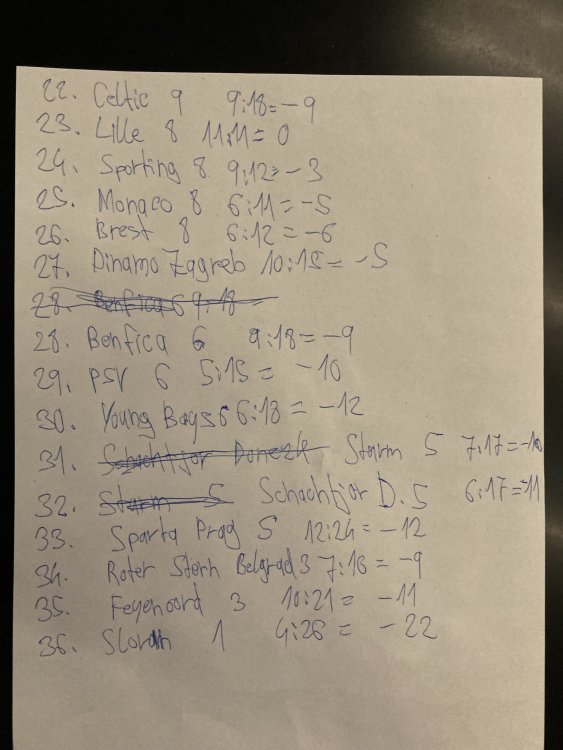 22. Celtic 9 9:18=-9
23. Lille 8 11:11=0
24. Sporting 8 9:12=-3
25. Monaco 8 6:11=-5
26. Brest 8 6:12=-6
27. Dinamo Zagreb 10:15=-5
28. Benfica 6 9:18
28. Benfica 6 9:18=-9
29. PSV 6 5:15= -10
30. Young Boys 6 6:18=-12
31. Schachtjor Donezk Sturm 5 7:17=-10
32. Sturm 5 Schachtjor D. 5 6:17=-11
33. Sparta Prag 5 12:24=-12
34. Roter Stern Belgrad 3 7:16=-9
35. Feyenoord 3 10:21= -11
36. Slovan 1 4:26= -22